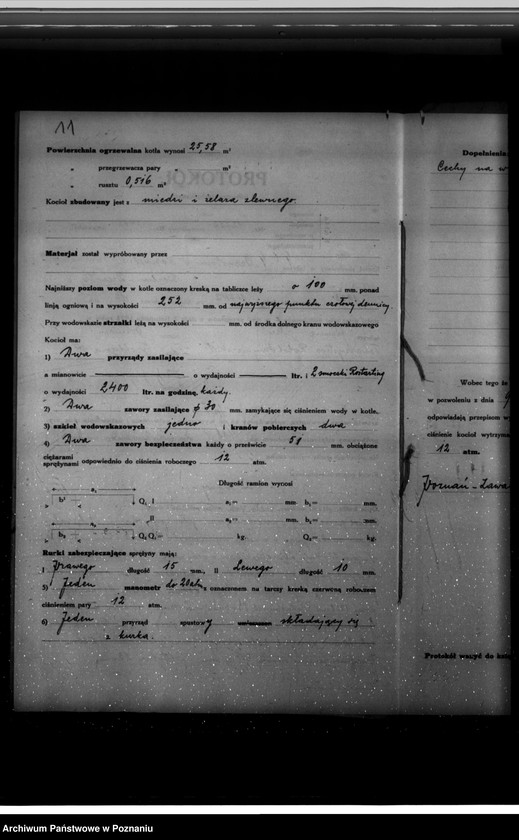 11
Powierzchnia ogrzewalna kotła wynosi 25,58 m²
„ przegrzewacza pary m²
„ rusztu 0,516 m²
Kocioł zbudowany jest z miedzi i żelaza zlewnego.
Materjał został wypróbowany przez
Najniższy poziom wody w kotle oznaczony kreską na tabliczce leży o 100 mm. ponad
linją ogniową i na wysokości 252 mm. od najwyższego punktu czołowej dennicy
Przy wodowskazie strzałki leżą na wysokości mm. od środka dolnego kranu wodowskazowego
Kocioł ma:
1) Dwa przyrządy zasilające
a mianowicie o wydajności ltr. i 2 smoczki
o wydajności 2400 ltr. na godzinę, każdy.
2) Dwa zawory zasilające ø 30 mm. zamykające się ciśnieniem wody w kotle.
3) szkieł wodowskazowych jedno i kranów pobierczych dwa
4) Dwa zawory bezpieczeństwa każdy o prześwicie 58 mm. obciążone
ciężarami
sprężynami odpowiednio do ciśnienia roboczego 12 atm.
Długość ramion wynosi
a₁ b¹ Q₁ I a₁= mm b₁= mm.
a₂ b₂ II a₂= mm. b₂= mm.
Q₂ Q₁= kg. Q₂= kg.
Rurki zabezpieczające sprężyny mają:
I Prawego długość 15 mm., II Lewego długość 10 mm.
5) Jeden manometr do 20 atm z oznaczeniem na tarczy kreską czerwoną roboczem
ciśnieniem pary 12 atm.
6) Jeden przyrząd spustowy składający się
z kurka.
Dopełnienie
Cechy na
Wobec tego że
w pozwoleniu z dnia
odpowiadają przepisom
ciśnienie kocioł wytrzyma
12 atm.
Poznań-Ława
Protokół wszyć do
Archiwum Państwowe w Poznaniu